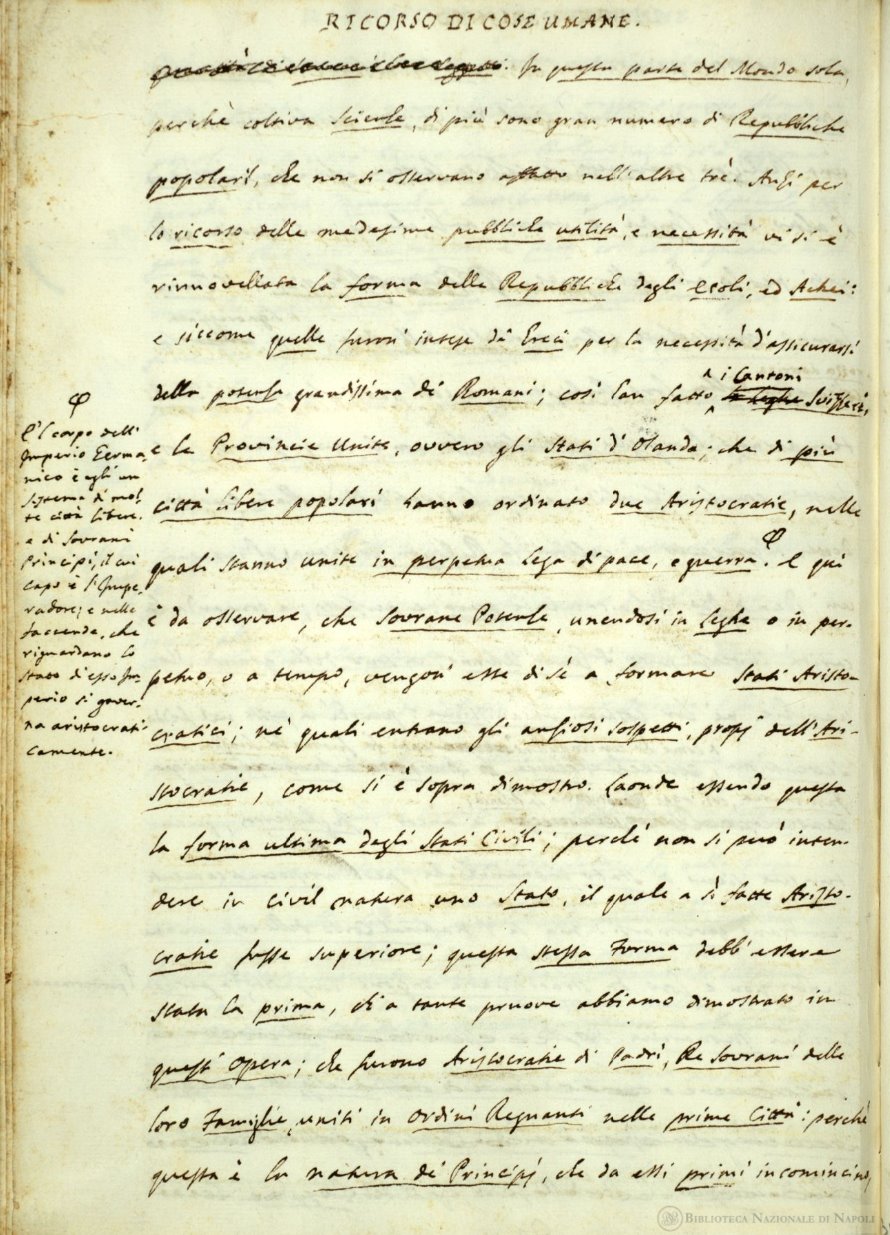 RICORSO DI COSE UMANE.
In questa parte del Mondo sola,
perchè coltiva Scienze, di più sono gran numero di Repubbliche
popolari, che non si osservano affatto nell'altre trè. Anzi per
lo ricorso delle medesime pubbliche utilità, e necessità vi si è
rinnovellata la forma delle Repubbliche degli Etoli, ed Achei:
e siccome quelle furon' intese dà Greci per la necessità d'assicurarsi
della potenza grandissima dè Romani; così han fatto i Cantoni Svizzeri,
e le Provincie Unite, ovvero gli Stati d'Olanda; che di più
città libere popolari hanno ordinato due Aristocratie, nelle
quali stanno unite in perpetua Lega di pace, e guerra. φ E quì
è da osservare, che Sovrane Potenze, unendosi in Leghe o in per-
petuo, o a tempo, vengon' esse di sè a formare Stati Aristo-
cratici; nè quali entrano gli anziosi sospetti, propj dell'Ari-
stocratie, come si è sopra dimostro. Laonde essendo questa
la forma ultima degli Stati Civili; perchè non si può inten-
dere in civil natura uno Stato, il quale a sì fatte Aristo-
cratie fusse superiore; questa stessa Forma debb'essere
stata la prima, ch'a tante pruove abbiamo dimostrato in
quest'Opera; che furono Aristocratie di Padri, Re Sovrani delle
loro Famiglie, uniti in Ordini Regnanti nelle prime Città: perchè
questa è la natura dè Principj, che da essi primi incomincino,
φ
E'l corpo dell'
Imperio Germa-
nico è egli un
Sistema di mol-
te città libere,
e di Sovrani
Principi, il cui
capo è l'Impe-
radore; e nelle
faccende, che
riguardano lo
Stato d'esso Im-
perio si gover-
na aristocrati-
camente.
BIBLIOTECA NAZIONALE DI NAPOLI